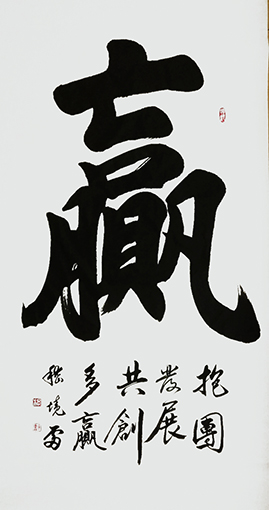 贏
抱團
發展
共創
多贏